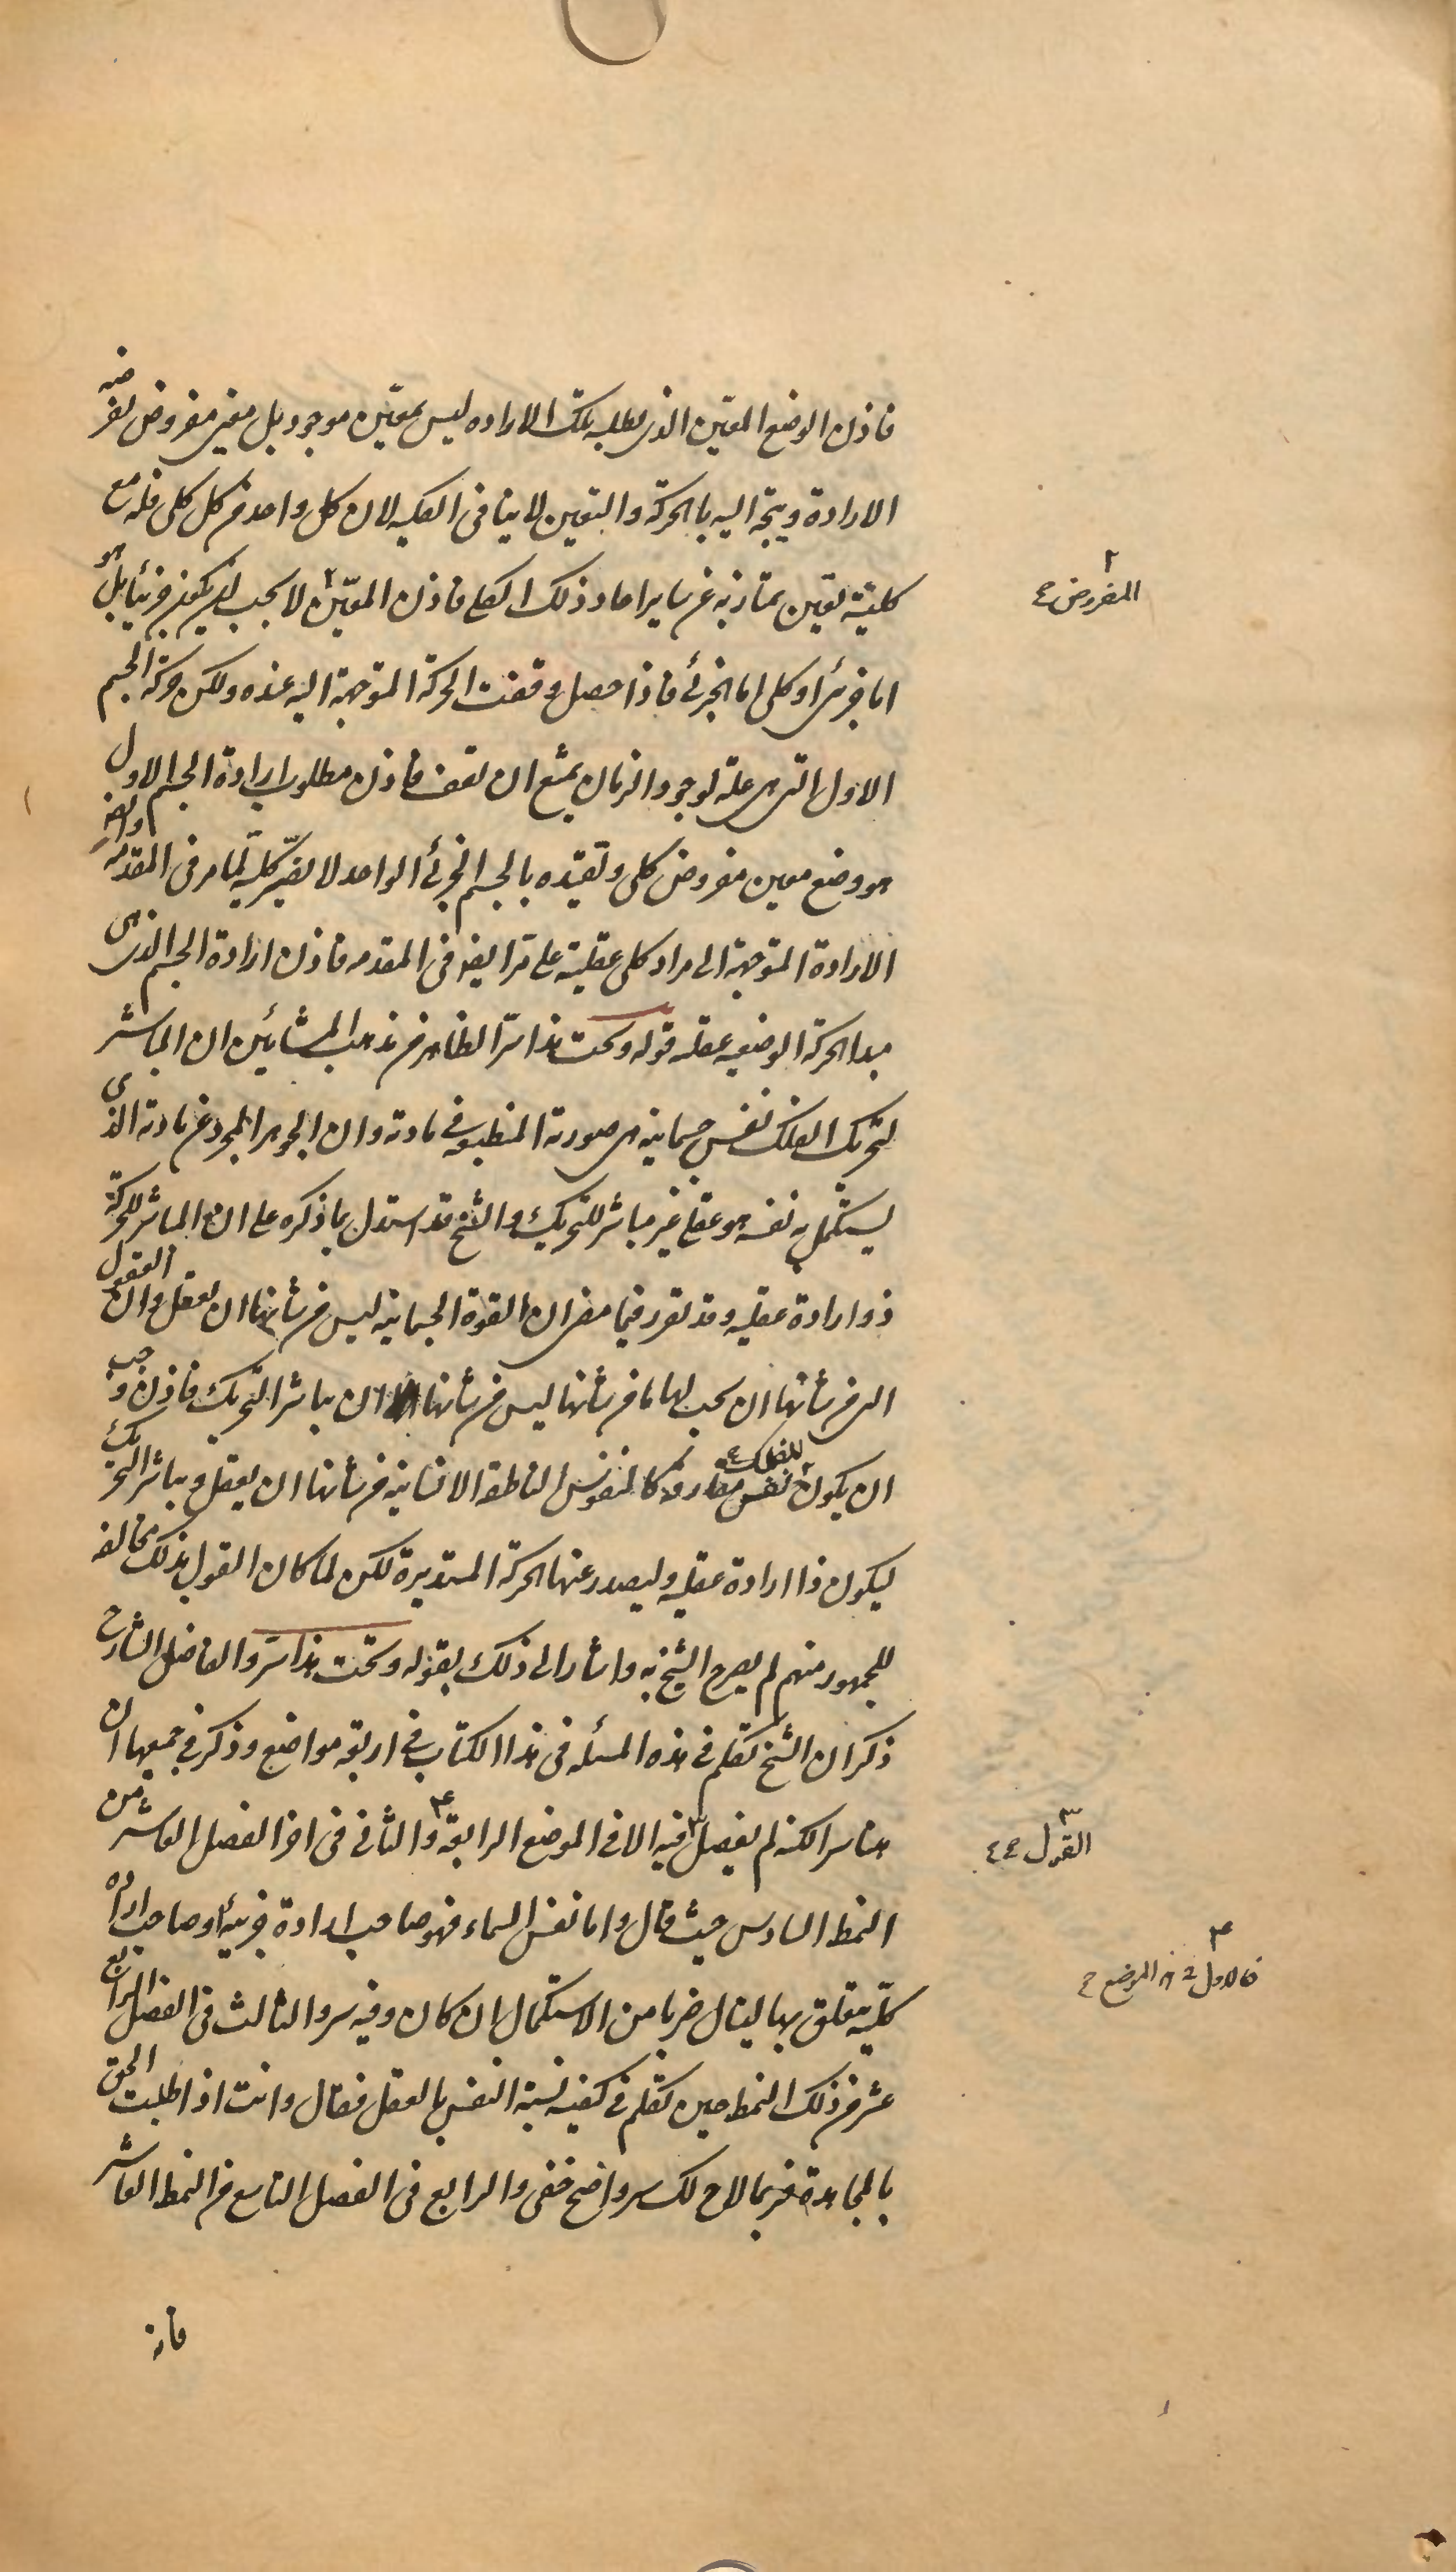 فاذن الوضع المعين الذى يطلبه تلك الاراده ليس بمعين موجود بل معين مفروض تفرضه
الارادة ويتجه اليه بالحركة والتعين لا ينافى الكليه لان كل واحد من كل كلى فله مع
كليته تعين يمتاز به عن ساير احاد ذلك الكلى فاذن المعين لا يجب ان يكون جزئيا بل هو
المفروض
اما جزئى او كلى اما الجزئى فاذا حصل وقفت الحركة المتوجهة اليه عنده ولكن حركة الجسم
الاول التى هى علة لوجود الزمان يمتنع ان تقف فاذن مطلوب ارادة الجسم الاول
هو وضع معين مفروض كلى وتقيده بالجسم الجزئى الواحد لا يضير كليته لما مر فى المقدمه وايضا
الارادة المتوجهة الى مراد كلى عقلية على مر ايضا فى المقدمه فاذن ارادة الجسم الذى هى
مبدا الحركة الوضعيه عقليه قوله وتحت هذا سر الظاهر من مذهب المشائين ان المباشر
لتحريك الفلك نفس جسمانيه هى صورته المنطبعه فى مادته وان الجوهر المجرد عن مادته الذى
يستكمل به نفسه هو عقل غير مباشر للتحريك والشيخ قد استدل بما ذكره على ان المباشر للحركة
ذو ارادة عقليه وقد تقرر فيما مضى ان القوة الجسمانيه ليس من شانها ان تعقل وان العقول
التى من شانها ان يجب لها ما من شانها ليس من شانها ان يباشر التحريك فاذن وجب
ان يكون للفلك نفس مفارقة كالنفوس الناطقة الانسانيه من شانها ان يعقل ويباشر التحريك
ليكون ذا ارادة عقليه وليصدر عنها الحركة المستديرة لكن لما كان القول بذلك مخالفه
للجمهور منهم لم يصرح الشيخ به واشار الى ذلك بقوله وتحت هذا سر والفاضل الشارح
ذكر ان الشيخ تكلم فى هذه المسئله فى هذا الكتاب فى اربعة مواضع وذكر فى جميعها ان
هناسرا لكنه لم يفصل فيه الا فى الموضع الرابعة والثانى فى اخر الفصل العاشر من
القول
النمط السادس حيث قال واما نفس السماء فهو صاحب ارادة جزئية او صاحب ارادة
فالاول فى هذا الموضع
كلية يتعلق بها لينال ضربا من الاستكمال ان كان وفيه سر والثالث فى الفصل الرابع
عشر من ذلك النمط حين تكلم فى كيفية نسبة النفس بالعقل فقال وانت اذا طلبت الحق
بالمجاهدة فربما لاح لك سر واضح خفى والرابع فى الفصل التاسع من النمط العاشر
فانه